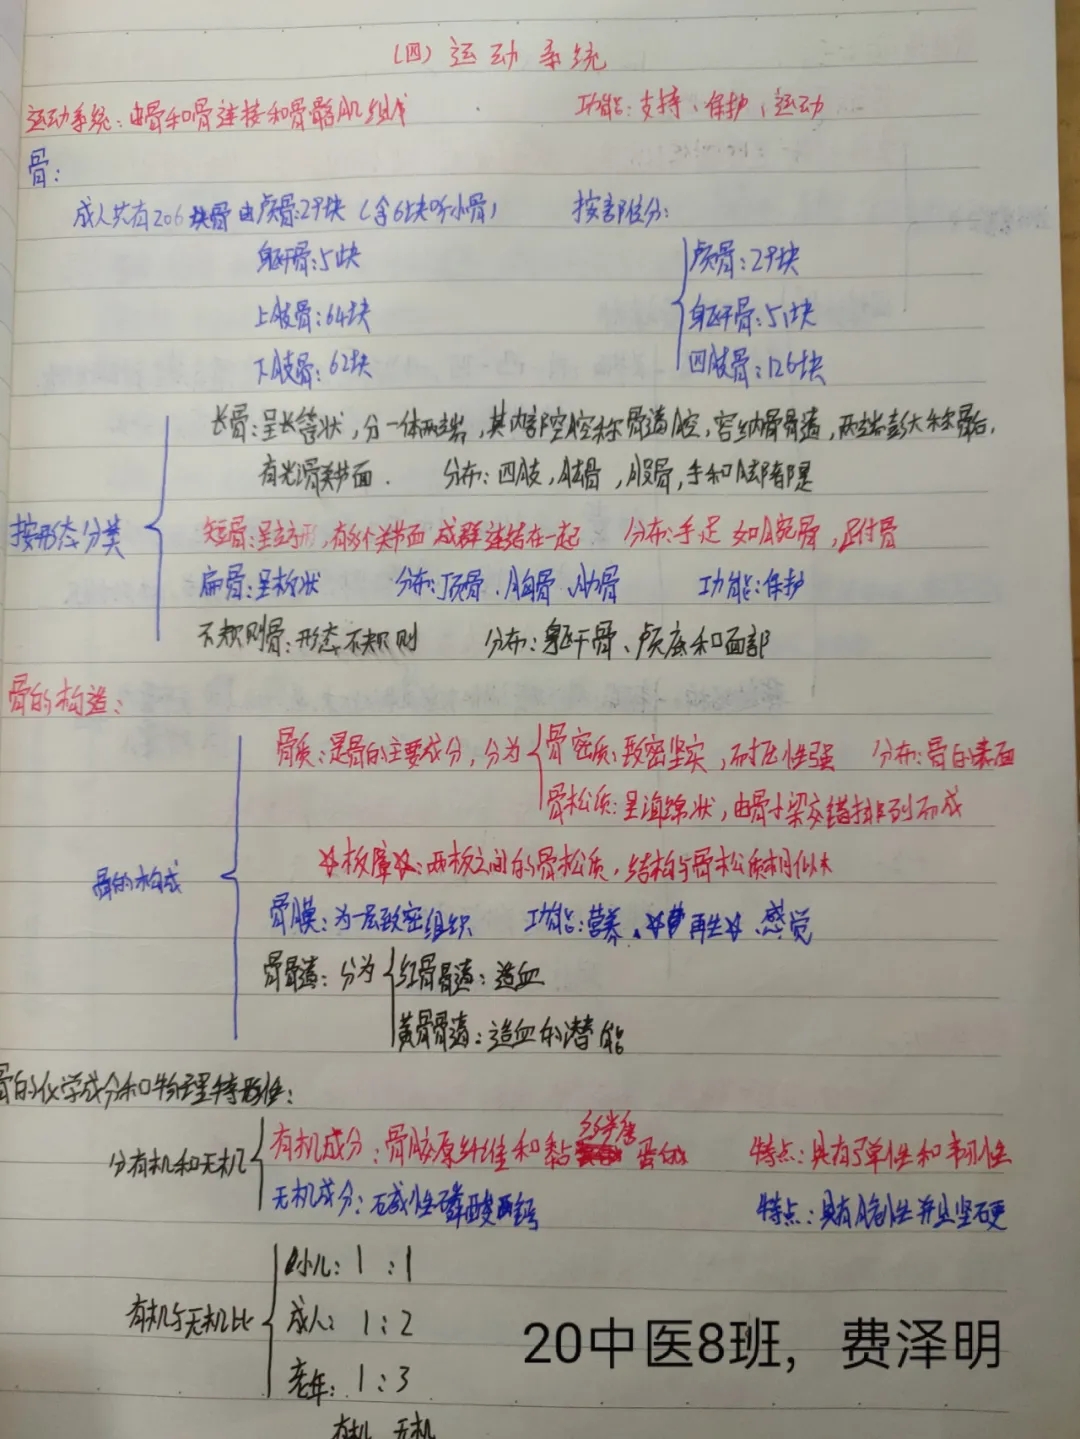 (四) 运动系统
运动系统：由骨和骨连接和骨骼肌组成 功能：支持、保护、运动
骨：
成人共有206块骨 由 颅骨：29块（含6块听小骨） 按部位分：
躯干骨：51块 颅骨：29块
上肢骨：64块 躯干骨：51块
下肢骨：62块 四肢骨：126块
长骨：呈长管状，分一体两端，其内部空腔称骨髓腔，容纳骨骨髓，两端膨大称骺，
有光滑关节面. 分布：四肢，股骨，手和脚都是
按形态分类
短骨：呈立方形，有多个关节面 成群连结在一起 分布：手足 如腕骨，跗骨
扁骨：呈板状 分布：顶骨、胸骨、肋骨 功能：保护
不规则骨：形态不规则 分布：躯干骨、颅底和面部
骨的构造：
骨质：是骨的主要成分，分为 骨密质：致密坚实，耐压性强 分布：骨的表面
骨松质：呈海绵状，由骨小梁交错排列而成
☆板障☆：两板之间的骨松质，结构与骨松质相似
骨的构成
骨膜：为一层致密组织 功能：营养、☆再生☆、感觉
骨骨髓：分为 红骨骨髓：造血
黄骨骨髓：造血的潜能
骨的化学成分和物理特性：
分有机和无机 有机成分：骨胶原纤维和黏多糖蛋白 特点：具有弹性和韧性
无机成分：碱性磷酸钙 特点：具有脆性并且坚硬
小儿：1：1
有机与无机比 成人：1：2
老年：1：3
有机 无机
20中医8班，费泽明